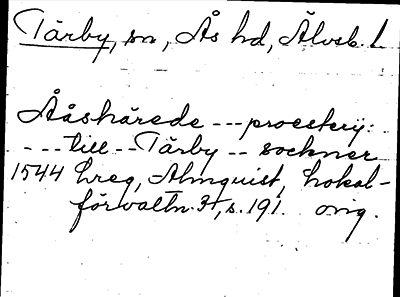 Tärby, sn, Ås hd, Älvsb. l.
Ååshärede --- proestery:
--- till -- Tärby -- sochner
1544 hreg, Almquist, Lokal-
förvaltn. 31, s. 191. orig.